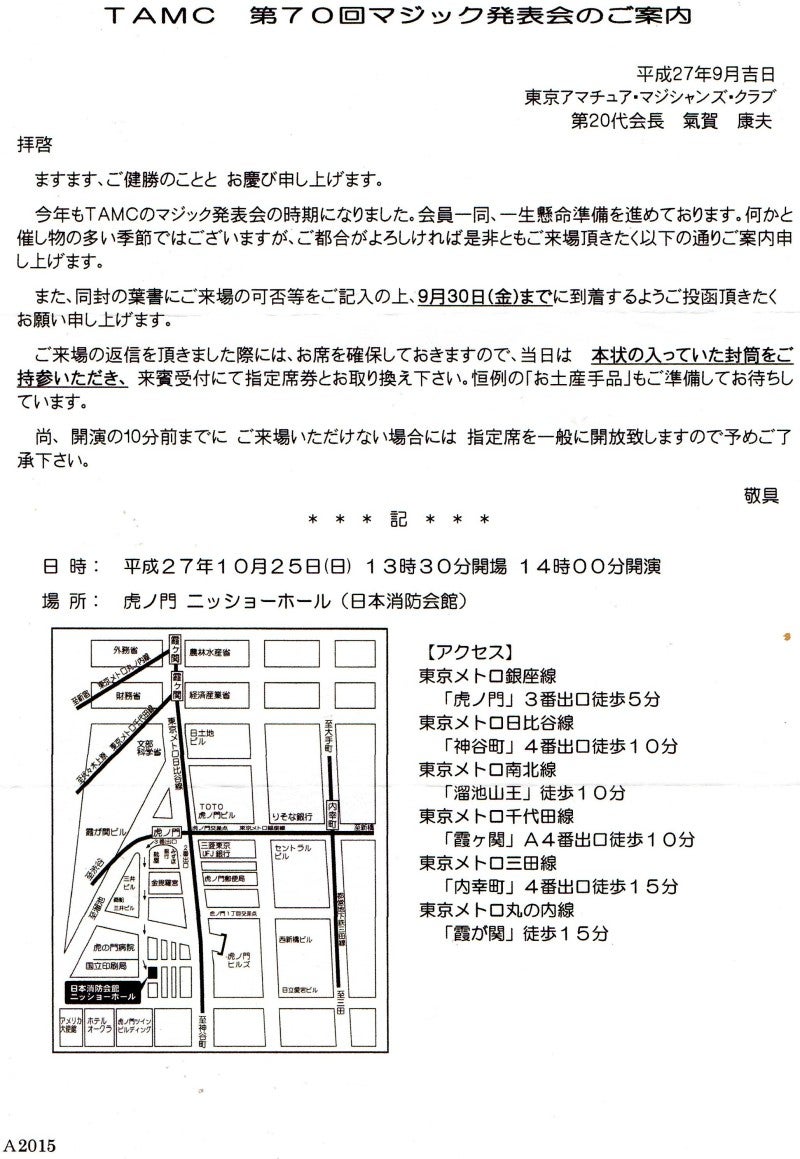 TAMC 第70回マジック発表会のご案内
平成27年9月吉日
東京アマチュア・マジシャンズ・クラブ
第20代会長 氣賀 康夫
拝啓
ますます、ご健勝のことと お慶び申し上げます。
今年もTAMCのマジック発表会の時期になりました。会員一同、一生懸命準備を進めております。何かと
催し物の多い季節ではございますが、ご都合がよろしければ是非ともご来場頂きたく以下の通りご案内申
し上げます。
また、同封の葉書にご来場の可否等をご記入の上、9月30日(金)までに到着するようご投函頂きたく
お願い申し上げます。
ご来場の返信を頂きました際には、お席を確保しておきますので、当日は 本状の入っていた封筒をご
持参いただき、 来賓受付にて指定席券とお取り換え下さい。恒例の「お土産手品」もご準備してお待ちし
ています。
尚、 開演の10分前までに ご来場いただけない場合には 指定席を一般に開放致しますので予めご了
承下さい。
敬具
* * * 記 * * *
日 時： 平成27年10月25日(日) 13時30分開場 14時00分開演
場 所： 虎ノ門 ニッショーホール（日本消防会館）
【アクセス】
東京メトロ銀座線
「虎ノ門」3番出口徒歩5分
東京メトロ日比谷線
「神谷町」4番出口徒歩10分
東京メトロ南北線
「溜池山王」徒歩10分
東京メトロ千代田線
「霞ヶ関」A4番出口徒歩10分
東京メトロ三田線
「内幸町」4番出口徒歩15分
東京メトロ丸の内線
「霞が関」徒歩15分
外務省
霞ヶ関
農林水産省
東京メトロ丸ノ内線
至新宿
財務省
霞ヶ関
経済産業省
東京メトロ千代田線
至代々木上原
文部
科学省
東京メトロ日比谷線
日土地
ビル
至大手町
TOTO
虎ノ門ビル
りそな銀行
内幸町
霞が関ビル
虎ノ門
虎ノ門交差点
東京メトロ銀座線
至新橋
3番出口
2番出口
至渋谷
三菱東京
UFJ銀行
セントラル
ビル
三井
ビル
金毘羅宮
虎ノ門郵便局
至溜池
三井ビル
虎ノ門1丁目交差点
都営地下鉄三田線
虎の門病院
国立印刷局
虎ノ門
ヒルズ
西新橋ビル
日立愛宕ビル
日本消防会館
ニッショーホール
至三田
アメリカ
大使館
ホテル
オークラ
虎ノ門ツイン
ビルディング
至神谷町
A2015